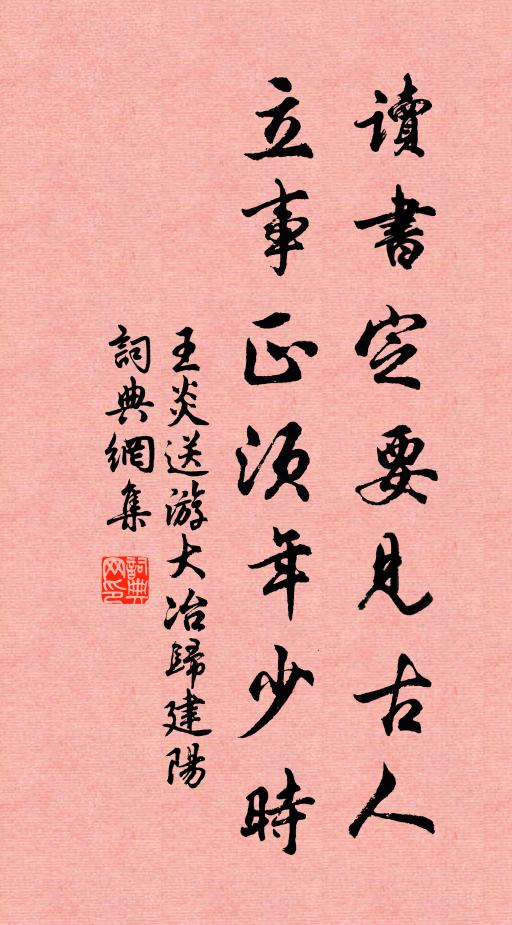 讀書定要見古人
立事正須年少時
王炎送游大冶歸建陽
詞典網集
詞典網印